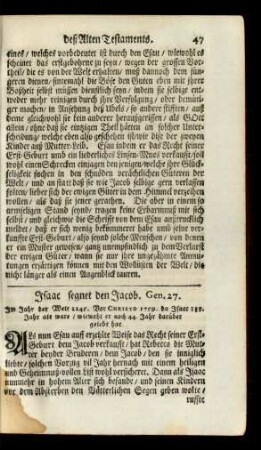 deß Alten Testaments. 47
eines / welches vorbedeutet ist durch den Esau / wiewohl es
scheinet das erstgebohrne zu seyn / wegen der grossen Vor-
theil / die es von der Welt erhalten / muß dannoch dem jün-
geren dienen / sintemahl die Böse den Guten eben mit ihrer
Boßheit selbst müssen dienstlich seyn / indem sie selbige ent-
weder mehr reinigen durch ihre Verfolgung / oder demüti-
ger machen / in Ansehung deß Ubels / so andere stifften / auß
deme gleichwohl sie kein anderer heraußgerissen / als GOtt
allein / ohne daß sie einzigen Theil hätten an solcher Unter-
scheidung / welche eben also geschehen ist
Kinder auß Mutter-Leib. Esau indem er das Recht seiner
Erst-Geburt und ein liederliches Linsen-Muß verkaufft
wohl einen Schrecken einjagen denjenigen / welche ihre Glück-
seeligkeit suchen in den schnöden verächtlichen Güteren der
Welt / und an statt daß sie wie Jacob selbige gern verlassen
sollen / lieber sich der ewigen Güter in dem Himmel verzeihen
wollen / als daß sie jener gerathen. Die aber in einem so
armseeligen Stand seynd / tragen keine Erbarmnuß mit sich
selbst / und gleichwie die Schrifft von dem Esau
meldet / daß er sich wenig bekümmeret habe um seine ver-
kauffte Erst-Geburt / also seynd solche Menschen / von denen
er ein Muster gewesen / gantz unempfindlich zu dem Verlurst
der ewigen Güter / wann sie nur ihre ungezähmte Anmu-
tungen ersättigen können mit den Wollüsten der Welt / die
nicht länger als einen Augenblick tauren.
Isaac segnet den Jacob. Gen. 27.
Im Jahr der Welt 2245. Vor CHRISTO 1759. da Isaac 138.
Jahr alt ware / wiewohl er noch 44. Jahr darüber
gelebt hat.
ALs nun Esau auff erzehlte Weise das Recht seiner Erst-
Geburt dem Jacob verkaufft / hat Rebecca die Mut-
ter beyder Brüderen / dem Jacob / den sie inniglich
liebte / solchen Vorzug vil Jahr hernach mit einem heiligen
und Geheimnuß-vollen List wohl versicheret. Dann als Isaac
nunmehr in hohem Alter sich befande / und seinen Kindern
vor dem Absterben den Vätterlichen Segen geben wolte /
ruffte